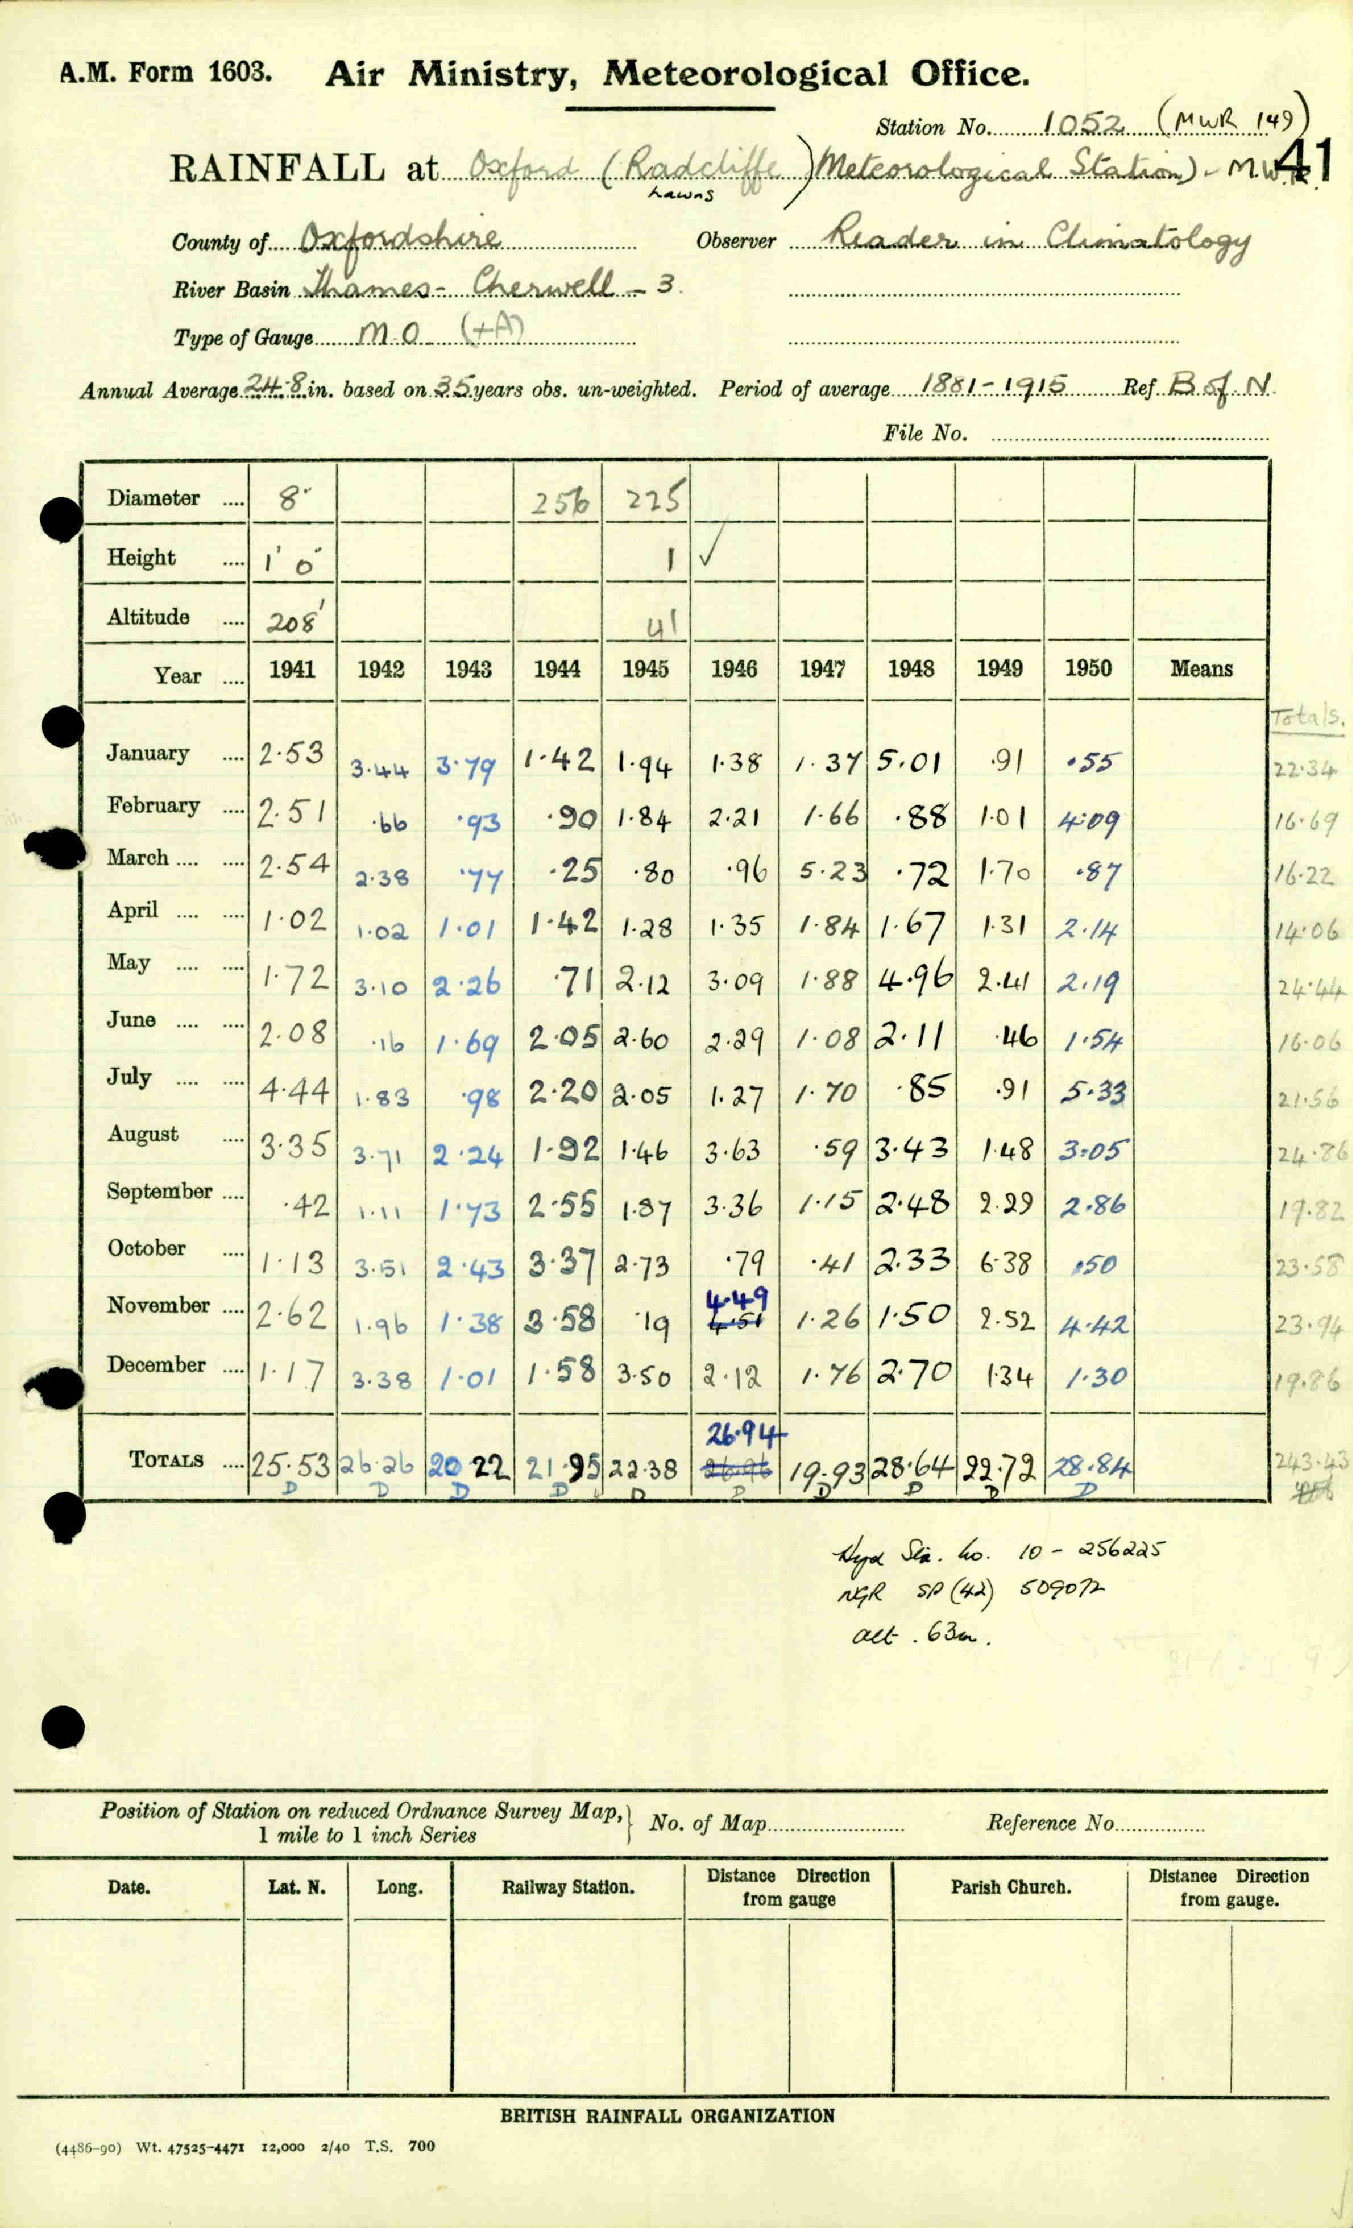 A.M. Form 1603. Air Ministry, Meteorological Office.
Station No. 1052 (MWR 149)
41
RAINFALL at Oxford (Radcliffe Lawns) Meteorological Station) - M.W.R.
County of Oxfordshire Observer Reader in Climatology
River Basin Thames - Cherwell - 3.
Type of Gauge M.O (+A)
Annual Average 24.8 in. based on 35 years obs. un-weighted. Period of average 1881-1915 Ref B of N.
File No.
Diameter .... 8" 256 225
Height .... 1' 0" 1 ✓
Altitude .... 208' 41
Year .... 1941 1942 1943 1944 1945 1946 1947 1948 1949 1950 Means
Totals.
January .... 2.53 3.44 3.79 1.42 1.94 1.38 1.37 5.01 .91 .55 22.34
February .... 2.51 .66 .93 .90 1.84 2.21 1.66 .88 1.01 4.09 16.69
March .... .... 2.54 2.38 .77 .25 .80 .96 5.23 .72 1.70 .87 16.22
April .... .... 1.02 1.02 1.01 1.42 1.28 1.35 1.84 1.67 1.31 2.14 14.06
May .... .... 1.72 3.10 2.26 .71 2.12 3.09 1.88 4.96 2.41 2.19 24.44
June .... .... 2.08 .16 1.69 2.05 2.60 2.29 1.08 2.11 .46 1.54 16.06
July .... .... 4.44 1.83 .98 2.20 2.05 1.27 1.70 .85 .91 5.33 21.56
August .... 3.35 3.71 2.24 1.92 1.46 3.63 .59 3.43 1.48 3.05 24.86
September .... .42 1.11 1.73 2.55 1.87 3.36 1.15 2.48 2.29 2.86 19.82
October .... 1.13 3.51 2.43 3.37 2.73 .79 .41 2.33 6.38 .50 23.58
4.49
November .... 2.62 1.96 1.38 3.58 .19 4.51 1.26 1.50 2.52 4.42 23.94
December .... 1.17 3.38 1.01 1.58 3.50 2.12 1.76 2.70 1.34 1.30 19.86
26.94
TOTALS .... 25.53 26.26 20.22 21.95 22.38 26.96 19.93 28.64 22.72 28.84 243.43
D D D D D D D D D D
Hyd Sta. No. 10 - 256225
NGR SP (42) 509072
alt. 63m.
Position of Station on reduced Ordnance Survey Map, } No. of Map Reference No.
1 mile to 1 inch Series
Date. Lat. N. Long. Railway Station. Distance Direction from gauge Parish Church. Distance Direction from gauge.
BRITISH RAINFALL ORGANIZATION
(4486-90) Wt. 47525-4471 12,000 2/40 T.S. 700